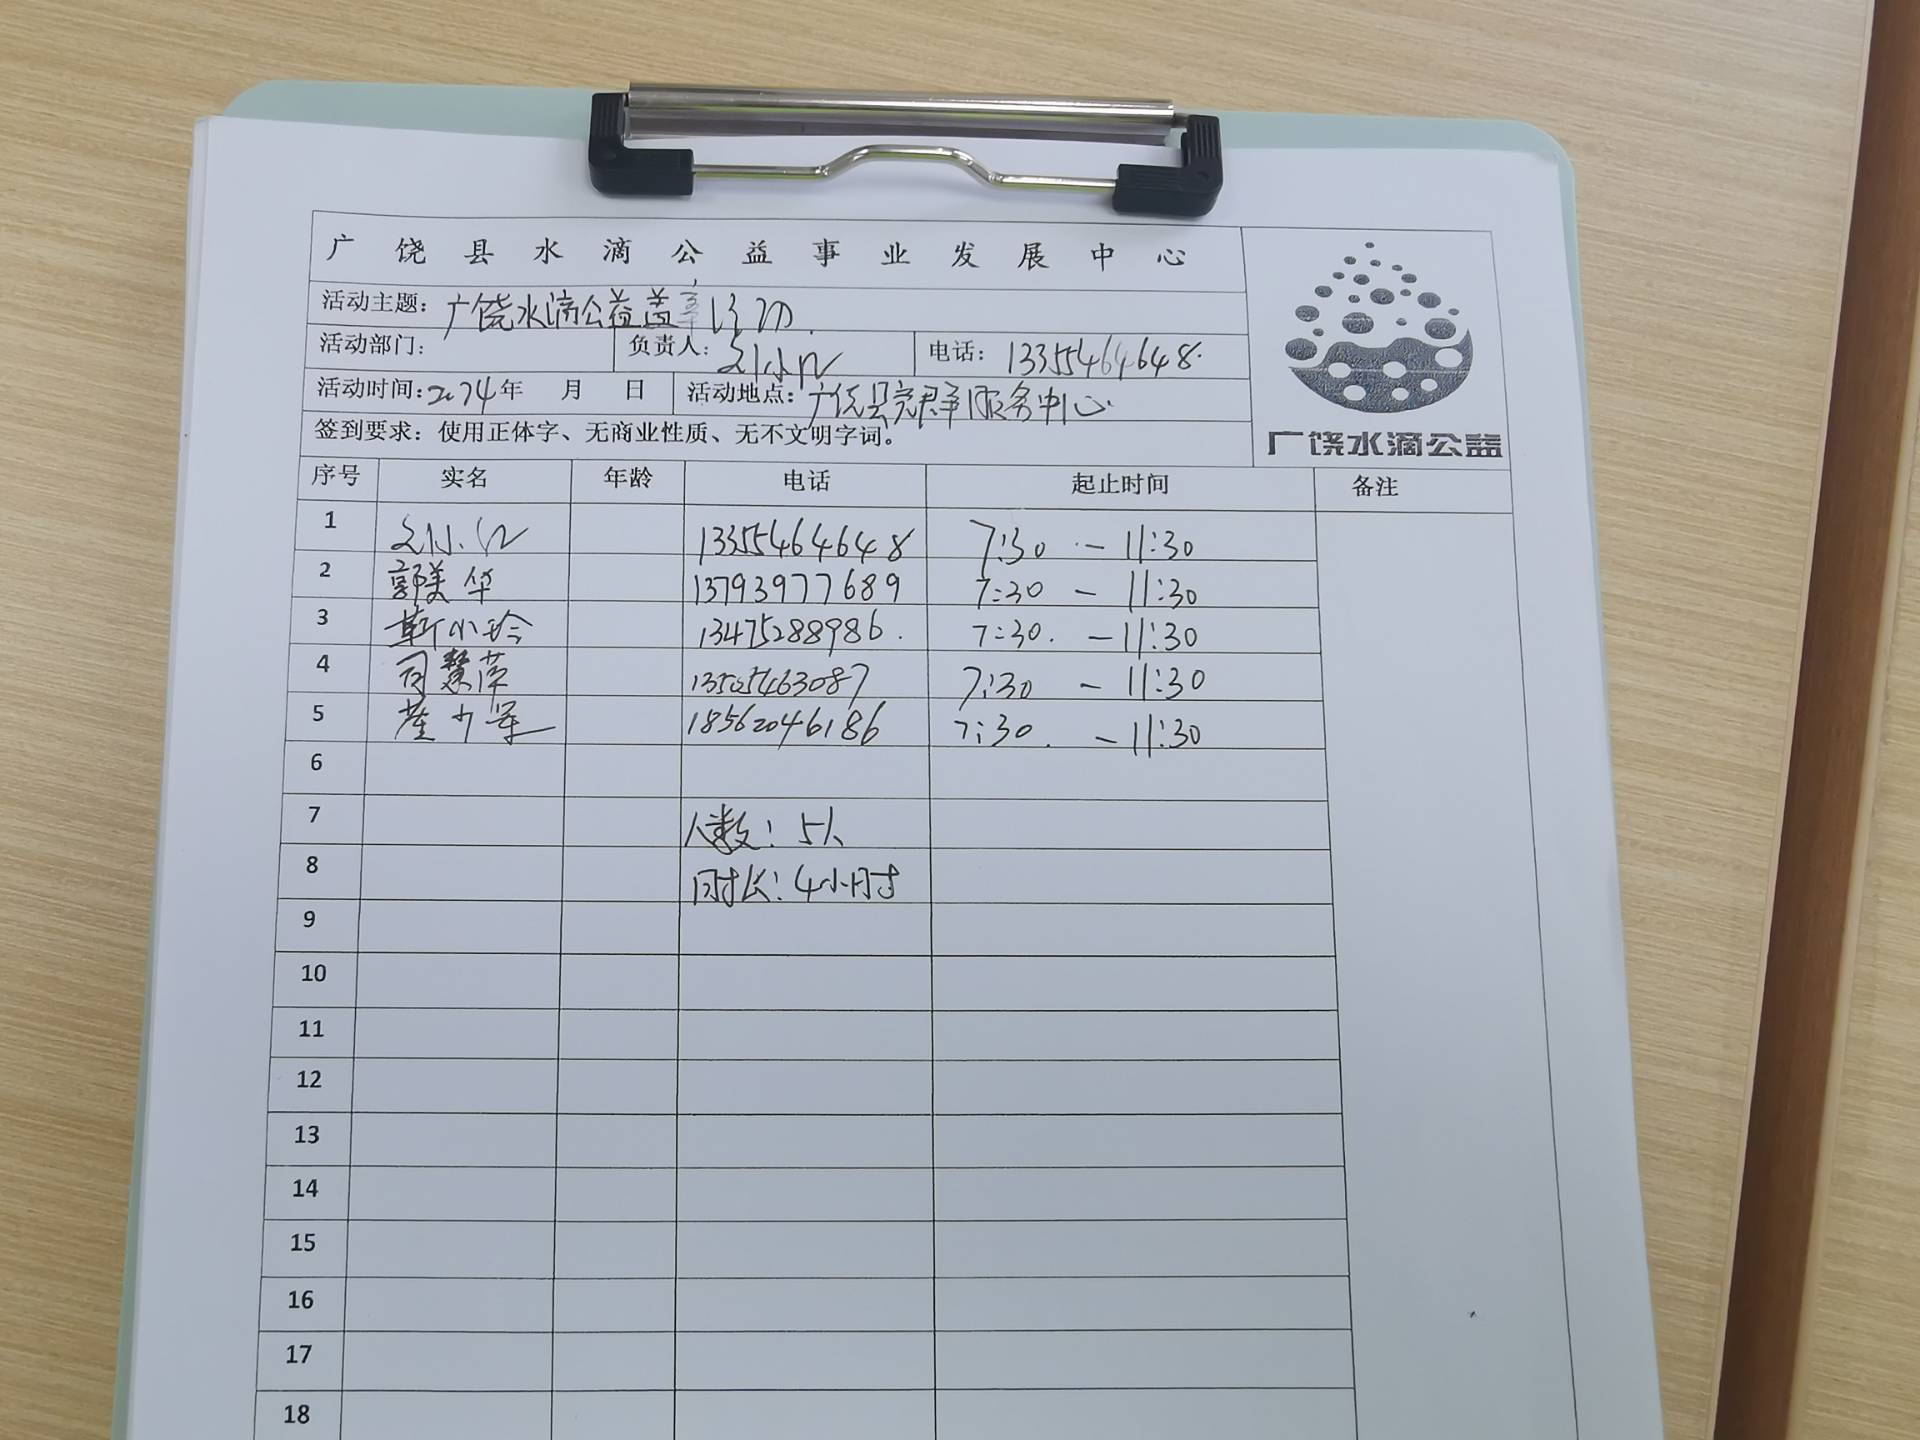 广饶县水滴公益事业发展中心
活动主题：广饶水滴公益盖章活动.
活动部门： 负责人：刘小红 电话：13355464648.
活动时间：2024年 月 日 活动地点：广饶县党群服务中心
签到要求：使用正体字、无商业性质、无不文明字词。
广饶水滴公益
序号 实名 年龄 电话 起止时间 备注
1 刘小红 13355464648 7:30 - 11:30
2 郭美华 13793977689 7:30 - 11:30
3 靳小玲 13475288986. 7:30. - 11:30
4 司慧萍 13505463087 7:30 - 11:30
5 崔少军 18562046186 7:30. - 11:30
6
7 人数：5人
8 时长：4小时
9
10
11
12
13
14
15
16
17
18